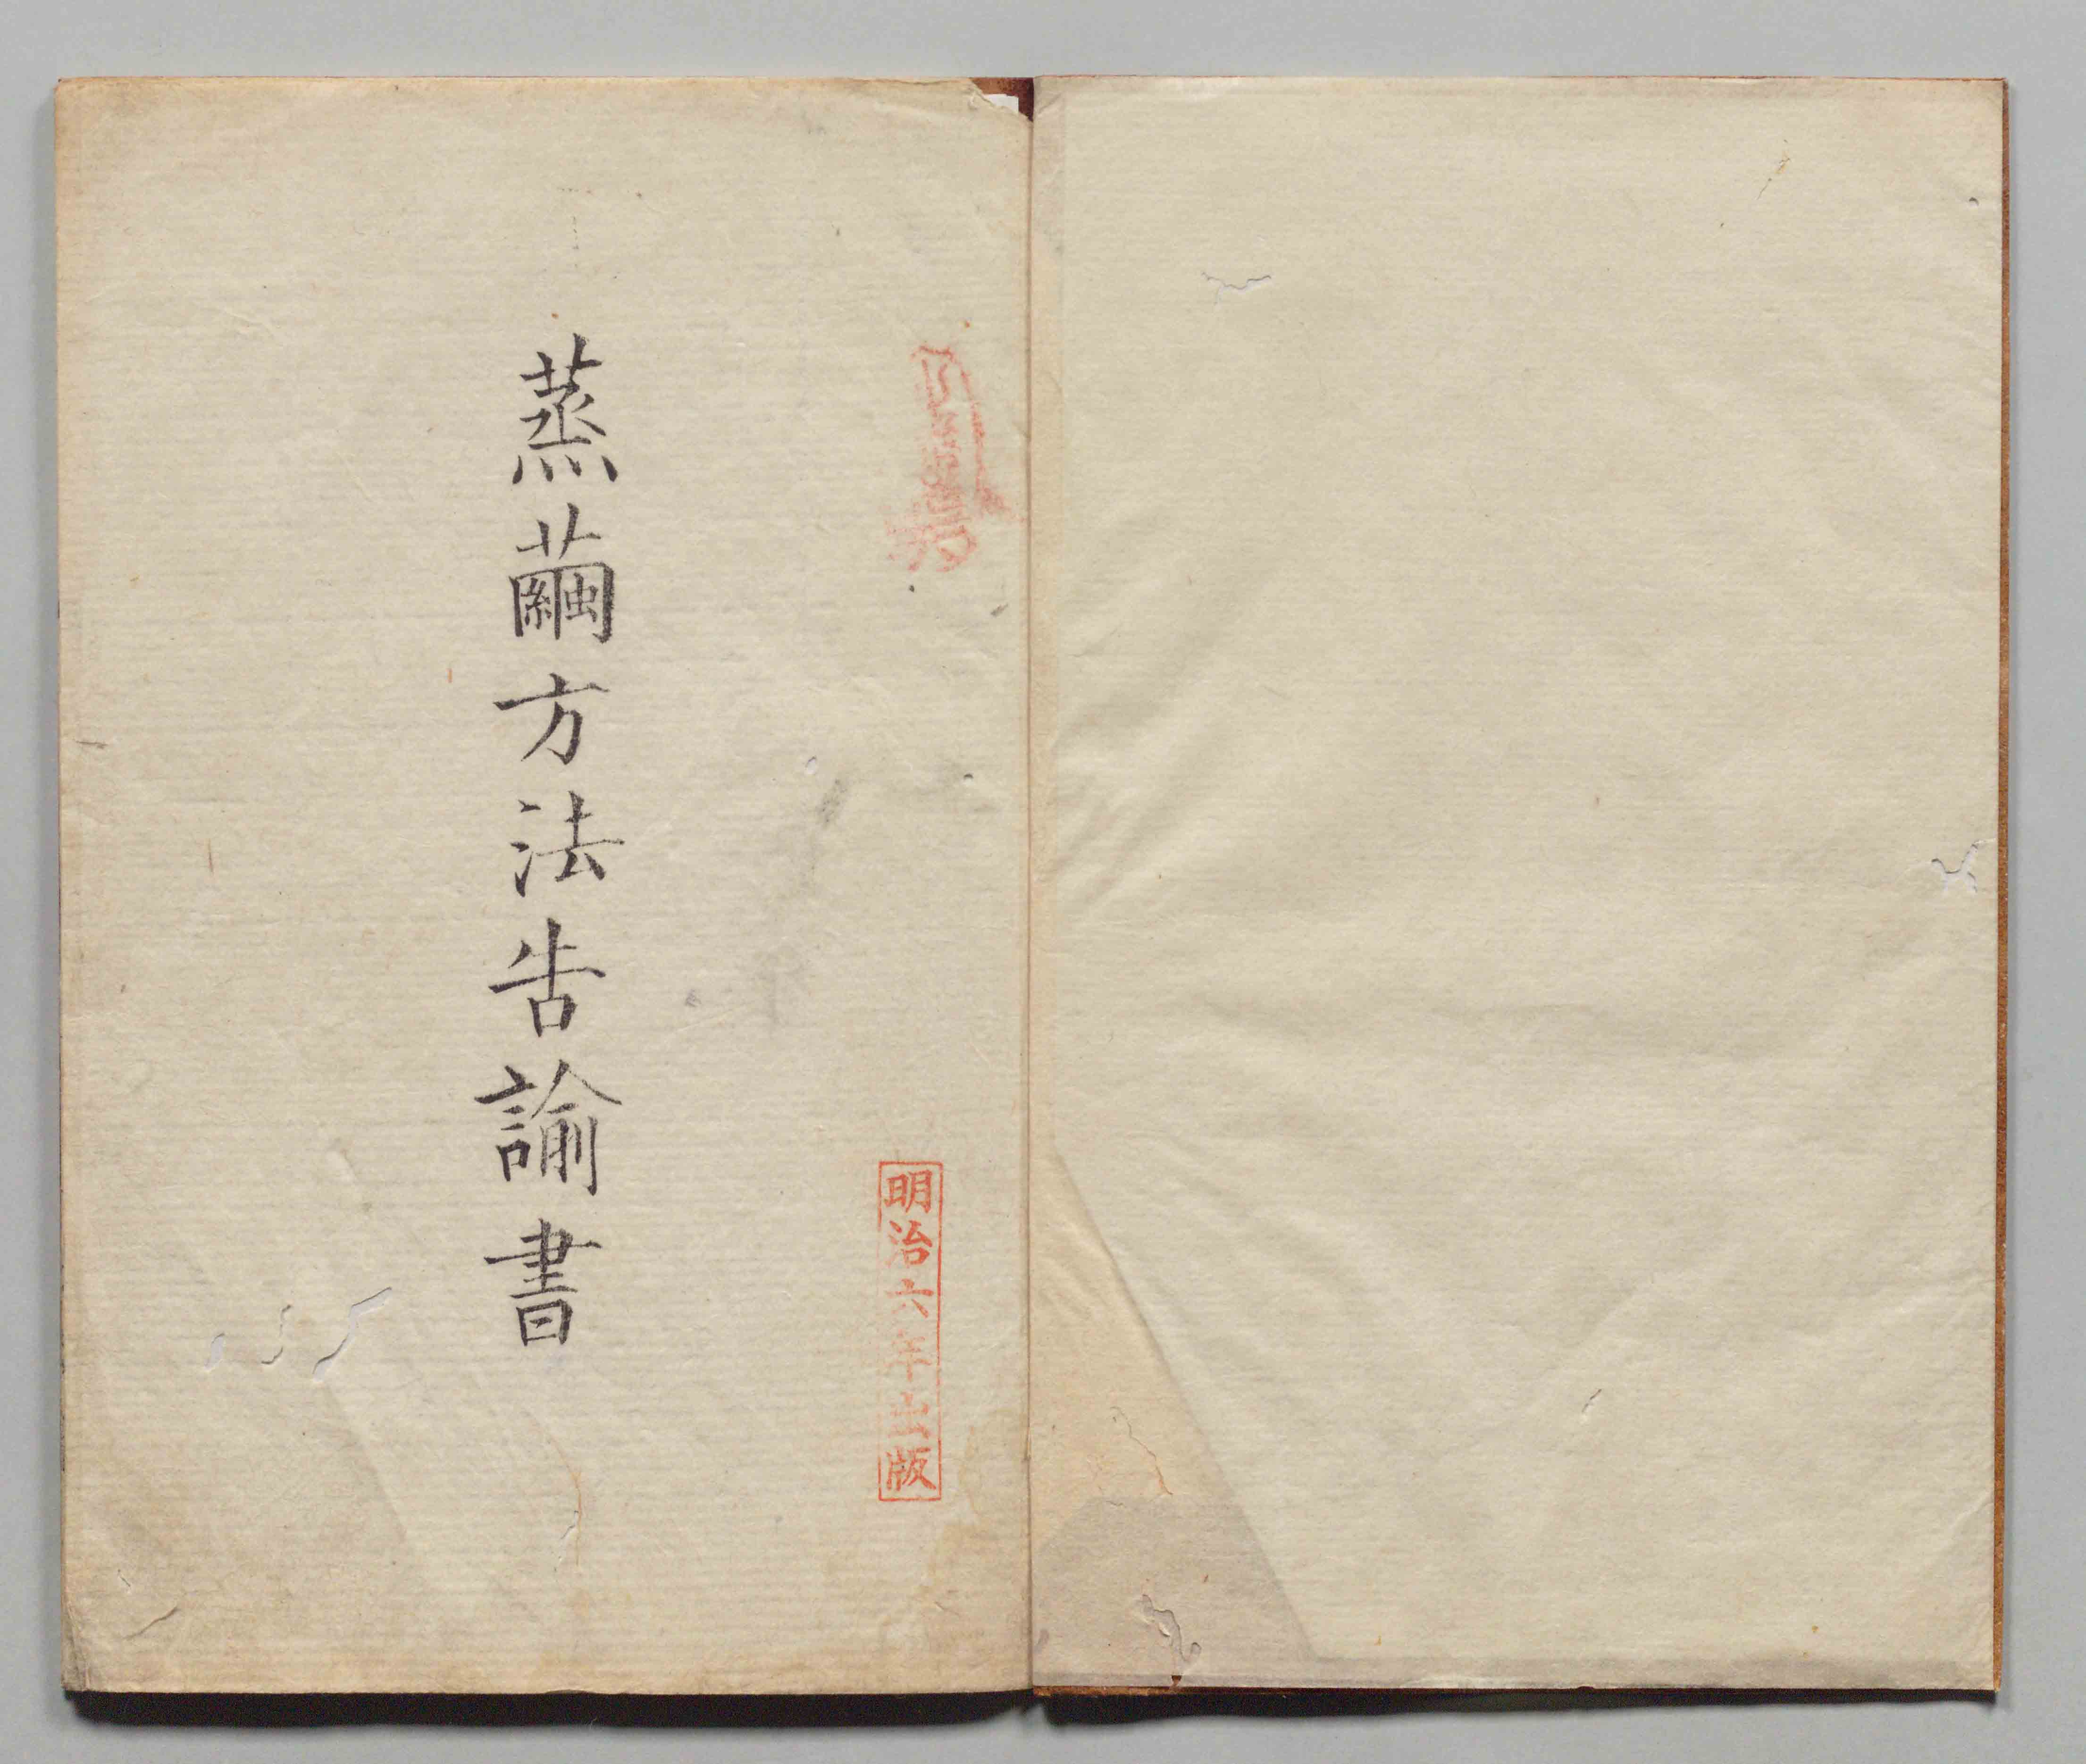 明治六年出版
蒸繭方法告諭書